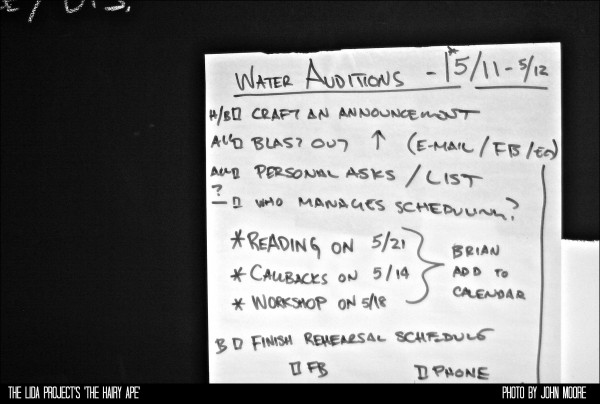 WATER AUDITIONS - *5/11 - 5/12
H/B CRAFT AN ANNOUNCEMENT
ALL BLAST OUT ↑ (E-MAIL / FB /
ALL PERSONAL ASKS / LIST
? WHO MANAGES SCHEDULING?
* READING ON 5/21
* CALLBACKS ON 5/14
* WORKSHOP ON 5/18
BRIAN
ADD TO
CALENDAR
B FINISH REHEARSAL SCHEDULE
FB PHONE
THE LIDA PROJECT'S 'THE HAIRY APE'
PHOTO BY JOHN MOORE